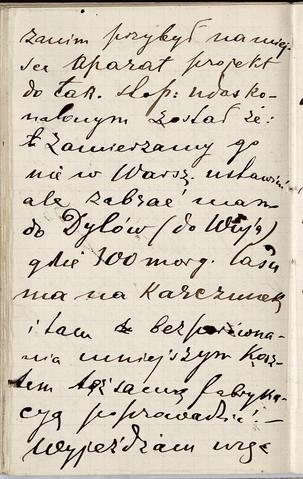 zanim przybył na miej-
sce aparat projekt
do tak. stop: udosko-
nalonym został że:
zamierzamy go
nie w Warsz. ustawić
ale zabrać mam
do Dylów (do Wuja)
gdzie 300 morg. lasu
ma na karczunek
i tam bez porówna-
nia mniejszym kosz-
tem tęż samą fabryka-
cyą poprowadzić –
Wyjeżdżam więc